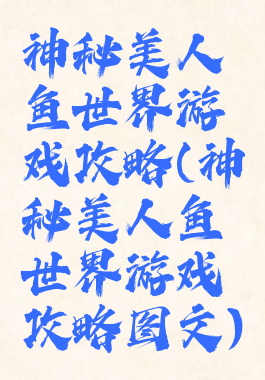 神秘美人
鱼世界游
戏攻略(神
秘美人鱼
世界游戏
攻略图文)